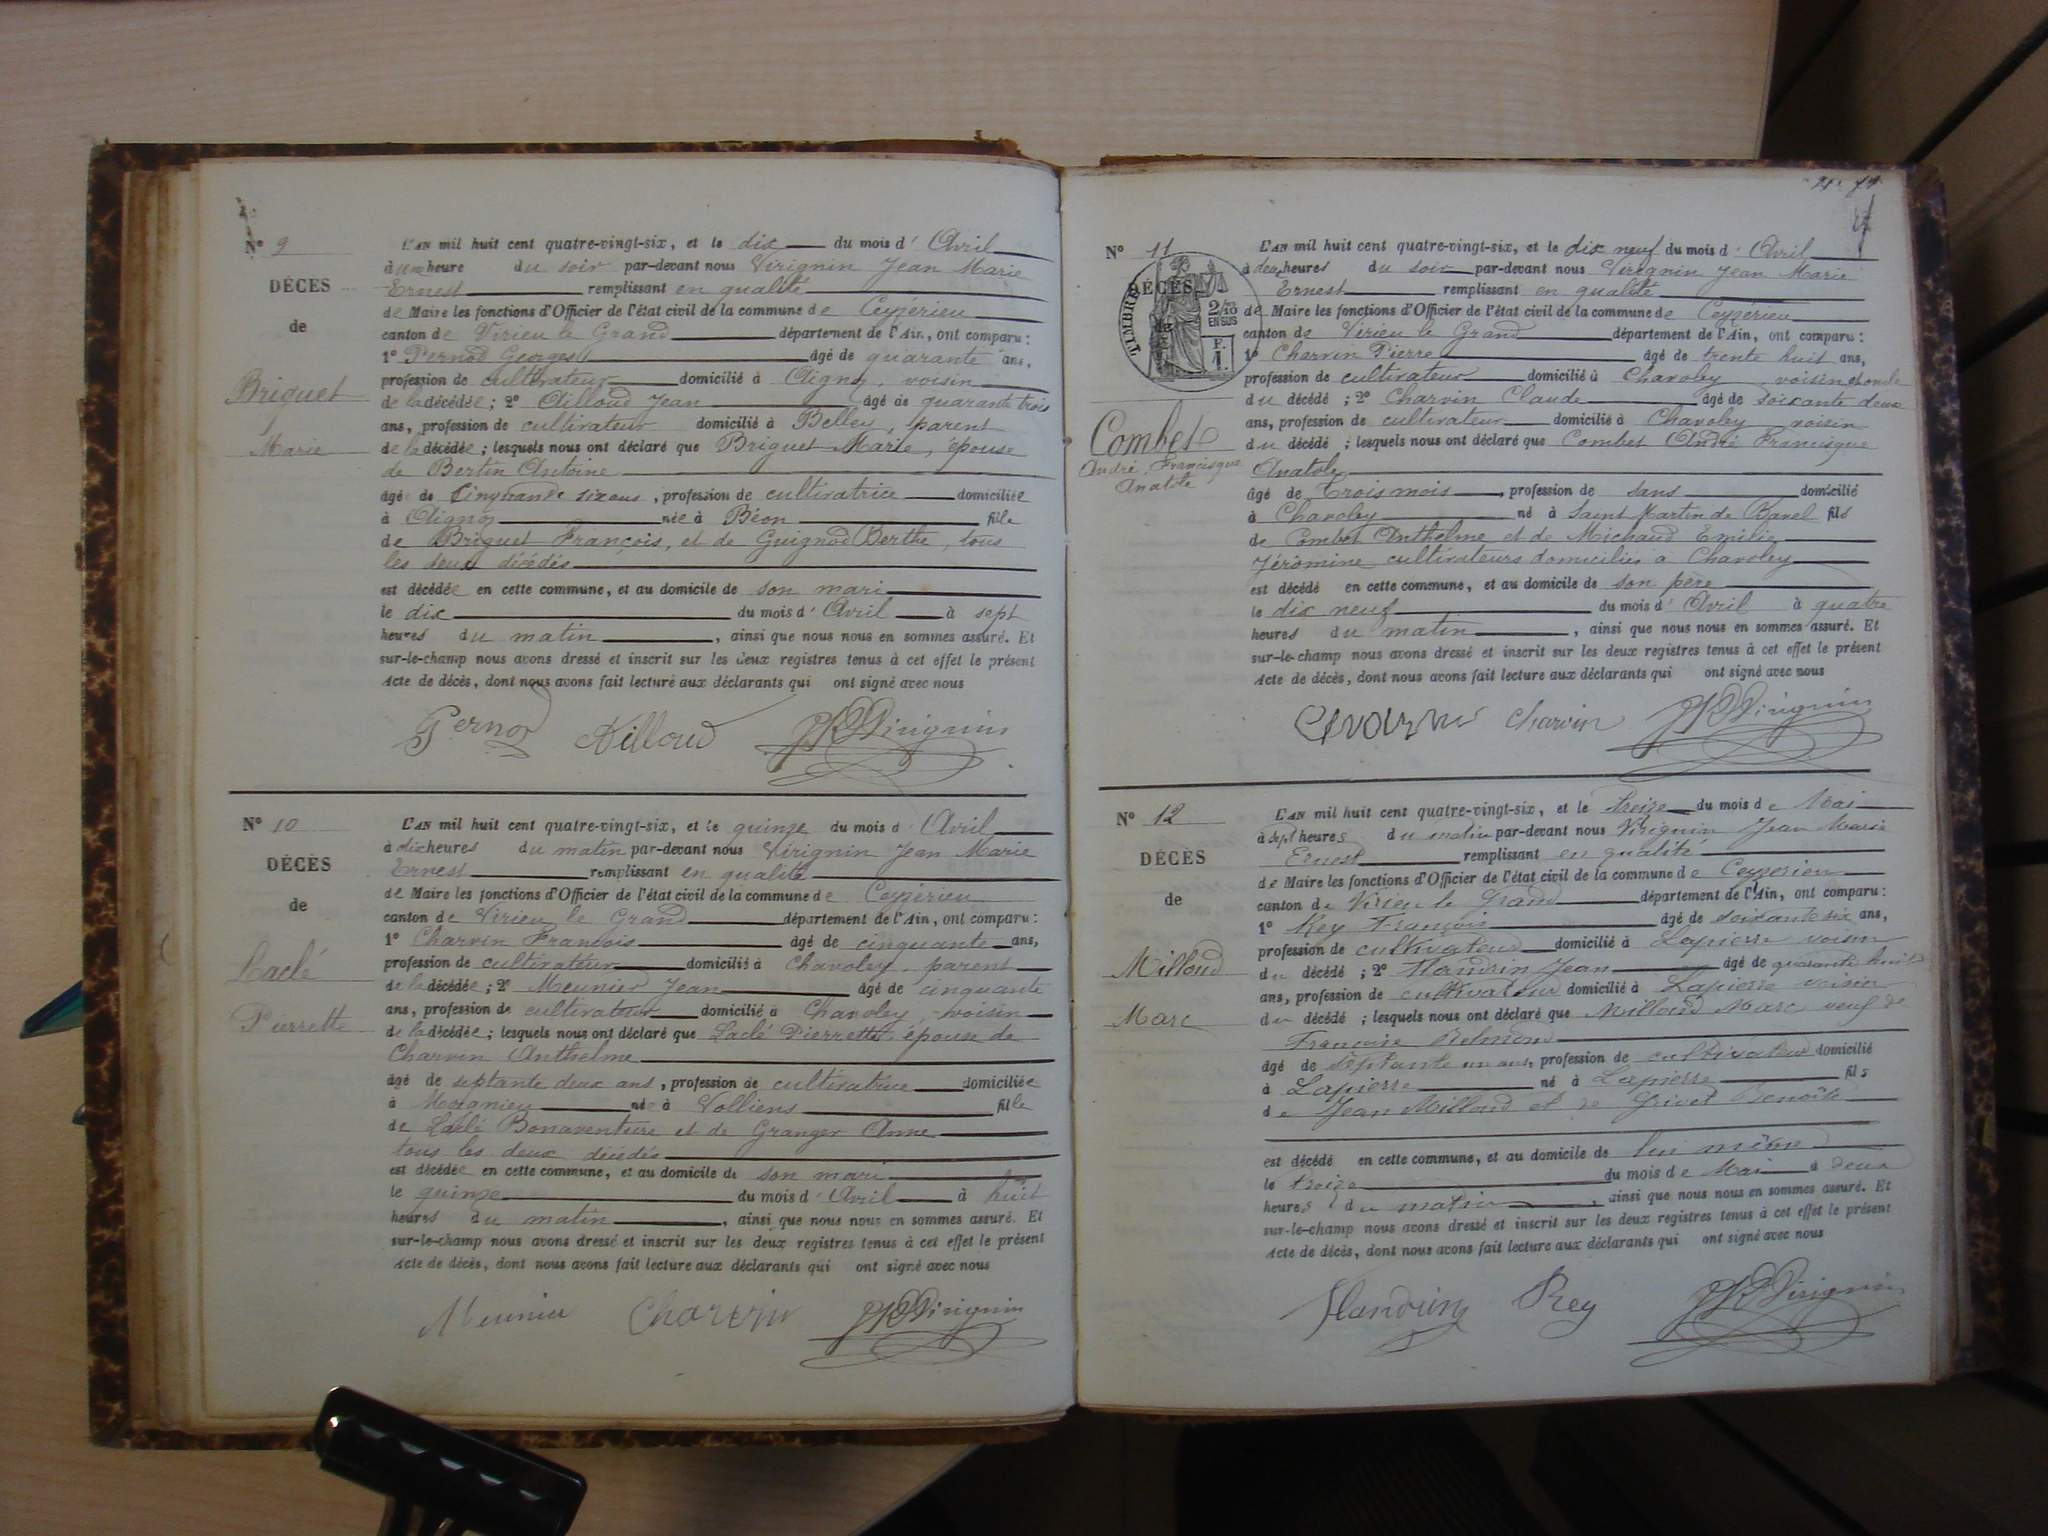 N° 9
DÉCÈS
de
Briquet
Marie
L'AN mil huit cent quatre-vingt-six, et le dix du mois d'Avril
à une heure du soir par-devant nous Virignin Jean Marie
Ernest remplissant en qualité
de Maire les fonctions d'Officier de l'état civil de la commune de Ceyzérieu
canton de Virieu le Grand département de l'Ain, ont comparu :
1° Pernod Georges âgé de quarante ans,
profession de cultivateur domicilié à Aignoz, voisin
de la décédée ; 2° Ailloud Jean âgé de quarante trois
ans, profession de cultivateur domicilié à Belley, parent
de la décédée ; lesquels nous ont déclaré que Briquet Marie, épouse
de Bertin Antoine
âgé de Cinquante six ans, profession de cultivatrice domiciliée
à Aignoz née à Béon fille
de Briquet François, et de Guignod Berthe, tous
les deux décédés
est décédée en cette commune, et au domicile de son mari
le dix du mois d'Avril à sept
heures du matin, ainsi que nous nous en sommes assuré. Et
sur-le-champ nous avons dressé et inscrit sur les deux registres tenus à cet effet le présent
Acte de décès, dont nous avons fait lecture aux déclarants qui ont signé avec nous
Pernod Ailloud Virignin
N° 10
DÉCÈS
de
Laclé
Pierrette
L'AN mil huit cent quatre-vingt-six, et le quinze du mois d'Avril
à dix heures du matin par-devant nous Virignin Jean Marie
Ernest remplissant en qualité
de Maire les fonctions d'Officier de l'état civil de la commune de Ceyzérieu
canton de Virieu le Grand département de l'Ain, ont comparu :
1° Charvin François âgé de cinquante ans,
profession de cultivateur domicilié à Chavoley, parent
de la décédée ; 2° Meunier Jean âgé de cinquante
ans, profession de cultivateur domicilié à Chavoley, voisin
de la décédée ; lesquels nous ont déclaré que Laclé Pierrette, épouse de
Charvin Anthelme
âgé de septante deux ans, profession de cultivatrice domiciliée
à née à Volliens fille
de Laclé Bonaventure et de Granger Anne
tous les deux décédés
est décédée en cette commune, et au domicile de son mari
le quinze du mois d'Avril à huit
heures du matin, ainsi que nous nous en sommes assuré. Et
sur-le-champ nous avons dressé et inscrit sur les deux registres tenus à cet effet le présent
Acte de décès, dont nous avons fait lecture aux déclarants qui ont signé avec nous
Meunier Charvin Virignin
N° 11
DÉCÈS
de
TIMBRE
2/10
EN SUS
F.
1.
Combet
André Francisque
Anatole
L'AN mil huit cent quatre-vingt-six, et le dix neuf du mois d'Avril
à deux heures du soir par-devant nous Virignin Jean Marie
Ernest remplissant en qualité
de Maire les fonctions d'Officier de l'état civil de la commune de Ceyzérieu
canton de Virieu le Grand département de l'Ain, ont comparu :
1° Charvin Pierre âgé de trente huit ans,
profession de cultivateur domicilié à Chavoley voisin et oncle
du décédé ; 2° Charvin Claude âgé de soixante deux
ans, profession de cultivateur domicilié à Chavoley voisin
du décédé ; lesquels nous ont déclaré que Combet André Francisque
Anatole
âgé de Trois mois, profession de sans domicilié
à Chavoley né à Saint Martin de Bavel fils
de Combet Anthelme et de Michaud Emilie
Jérômine cultivateurs domiciliés à Chavoley
est décédé en cette commune, et au domicile de son père
le dix neuf du mois d'Avril à quatre
heures du matin, ainsi que nous nous en sommes assuré. Et
sur-le-champ nous avons dressé et inscrit sur les deux registres tenus à cet effet le présent
Acte de décès, dont nous avons fait lecture aux déclarants qui ont signé avec nous
Charvin Charvin Virignin
N° 12
DÉCÈS
de
Milloud
Marc
L'AN mil huit cent quatre-vingt-six, et le Treize du mois de Mai
à sept heures du matin par-devant nous Virignin Jean Marie
Ernest remplissant en qualité
de Maire les fonctions d'Officier de l'état civil de la commune de Ceyzérieu
canton de Virieu le Grand département de l'Ain, ont comparu :
1° Rey François âgé de soixante six ans,
profession de cultivateur domicilié à Lapierre voisin
du décédé ; 2° Flandrin Jean âgé de quarante huit
ans, profession de cultivateur domicilié à Lapierre voisin
du décédé ; lesquels nous ont déclaré que Milloud Marc veuf de
Françoise
âgé de septante un ans, profession de cultivateur domicilié
à Lapierre né à Lapierre fils
de Jean Milloud et de Benoîte
est décédé en cette commune, et au domicile de lui même
le treize du mois de Mai à deux
heures du matin, ainsi que nous nous en sommes assuré. Et
sur-le-champ nous avons dressé et inscrit sur les deux registres tenus à cet effet le présent
Acte de décès, dont nous avons fait lecture aux déclarants qui ont signé avec nous
Flandrin Rey Virignin